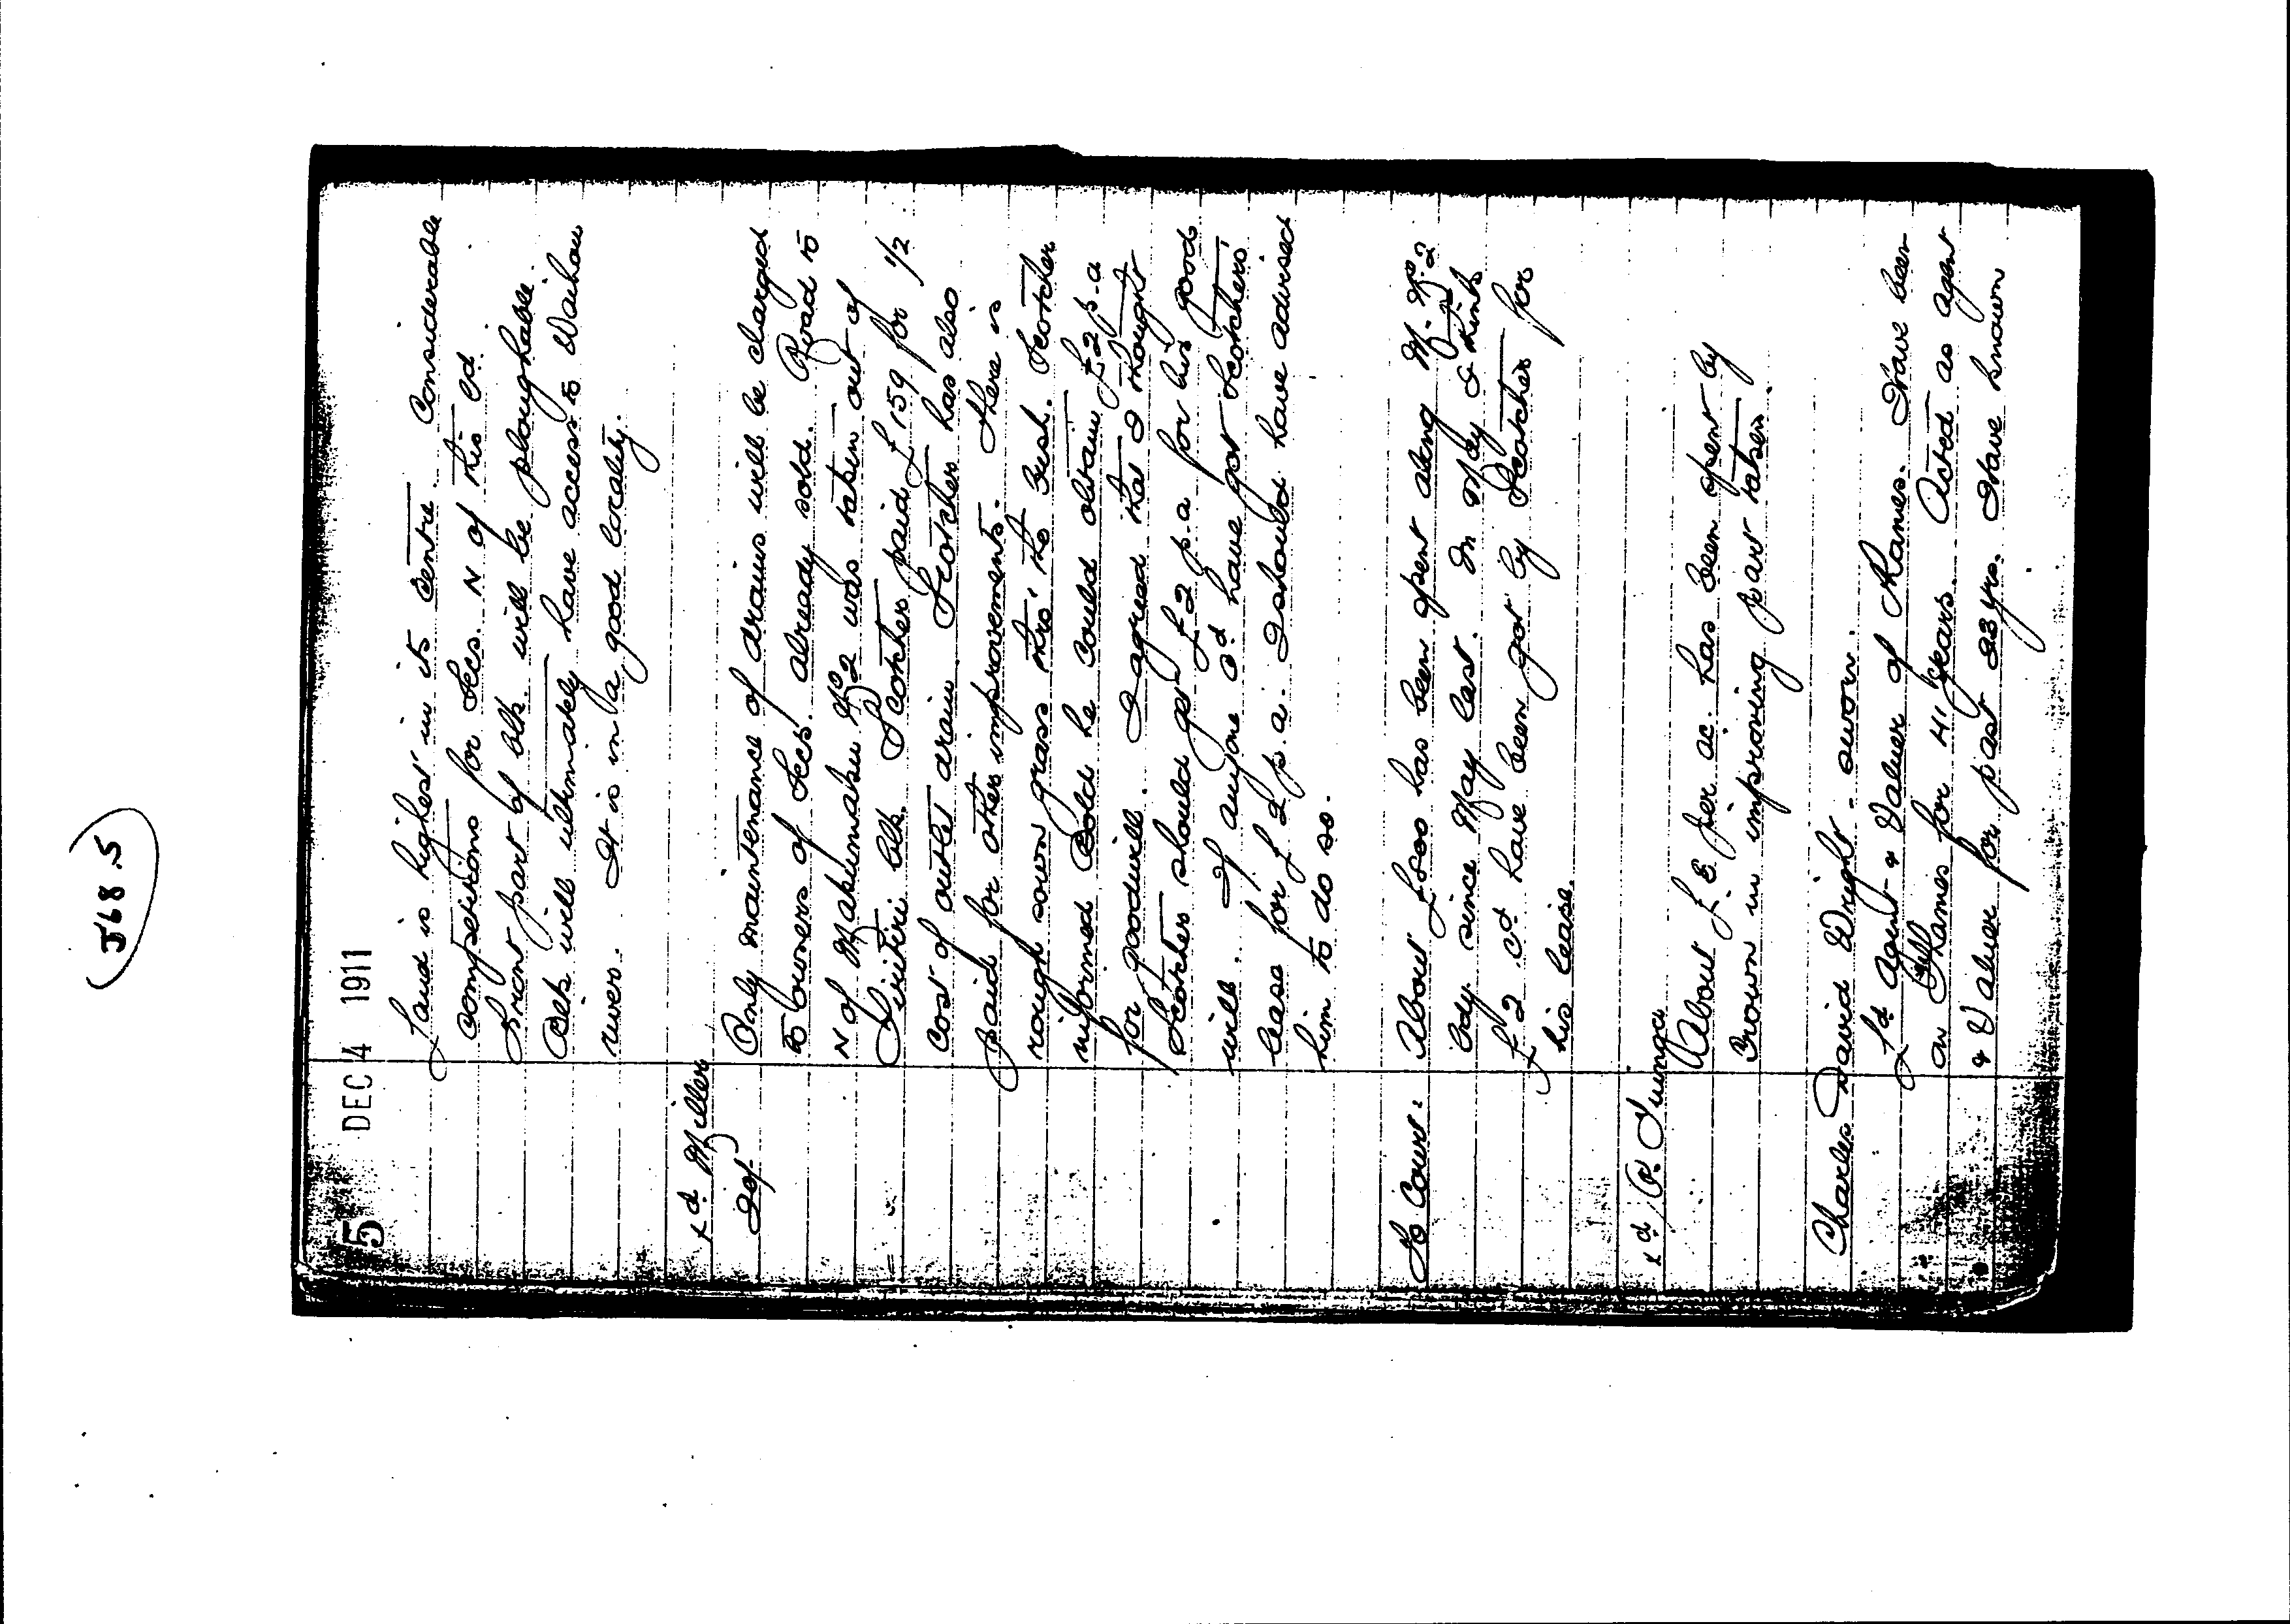 J68.5
5 DEC 4 1911
Land is highest in its centre. Considerable
competitions for Secs. N of this Ld.
Front part of blk. will be ploughable.
Blk will ultimately have access to Waihou
river. It is in a good locality.
xd. Miller
Only maintenance of drains will be charged
to owners of Secs. already sold. Road to
N of Makumaku No 2 was taken out of
blk. Scotcher paid £159 for 1/2
cost of outlet drain. Scotcher has also
paid for other improvements. There is
rough sown grass thro' the bush. Scotcher
informed Bold he could obtain £2 p.a
for goodwill. I agreed that I thought
Scotcher should get £2 p.a for his good
will. If anyone cd have got Scotchers'
lease for £2 p.a. I should have advised
him to do so.
To Court. About £500 has been spent along M. No. 2
bdy since May last. In May I think
£2 cd have been got by Scotcher for
his lease.
xd R.
About £8 per ac. has been spent by
Brown in improving part taken.
Charles David Wright - sworn.
Ld Agent & Valuer of Thames. Have been
in Thames for 41 years. Acted as agent
& Valuer for past 23 yrs. Have known